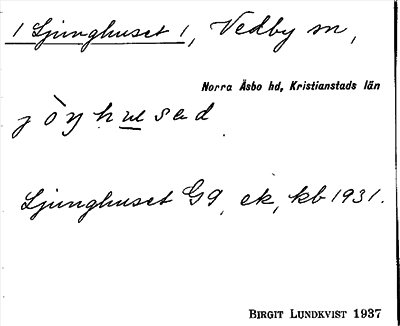 1 Ljunghuset 1, Vedby sn,
Norra Åsbo hd, Kristianstads län
Ljunghuset G9, ek, kb 1931.
BIRGIT LUNDKVIST 1937